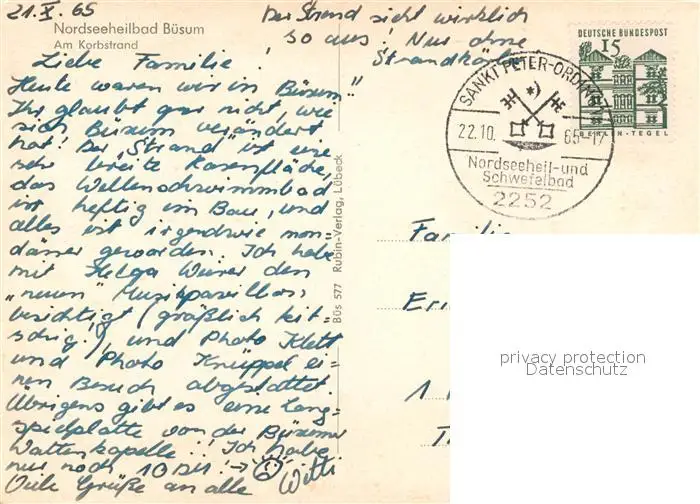 21.X.65
Der Strand sieht wirklich
so aus! Nur ohne
Strandkörbe
Nordseeheilbad Büsum
Am Korbstrand
Liebe Familie!
Heute waren wir in "Büsum"
Ihr glaubt gar nicht, wie
sich Büsum verändert
hat! Der "Strand" ist eine
sehr breite Rasenfläche,
das Wellenschwimmbad
ist heftig im Bau, und
alles ist irgendwie mon=
däner geworden. Ich habe
mit Helga Wurer den
"neuen" Musikpavillon
besichtigt (gräßlich kit=
schig!) und Photo Klett
und Photo Knüppel ei=
nen Besuch abgestattet.
Übrigens gibt es eine Lang=
spielplatte von der Büsumer
Wattenkapelle!! Ich habe
nur noch 10 DM! →
Viele Grüße an alle Witti
Büs 577 Rubin-Verlag, Lübeck
DEUTSCHE BUNDESPOST
15
BERLIN-TEGEL
SANKT PETER-ORDING
22.10. 65-17
Nordseeheil-und
Schwefelbad
2252
Familie
Eri
1
T
privacy protection
Datenschutz